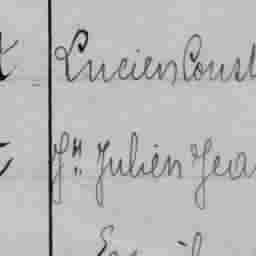 Lucien Const
Jh. Julien Jea